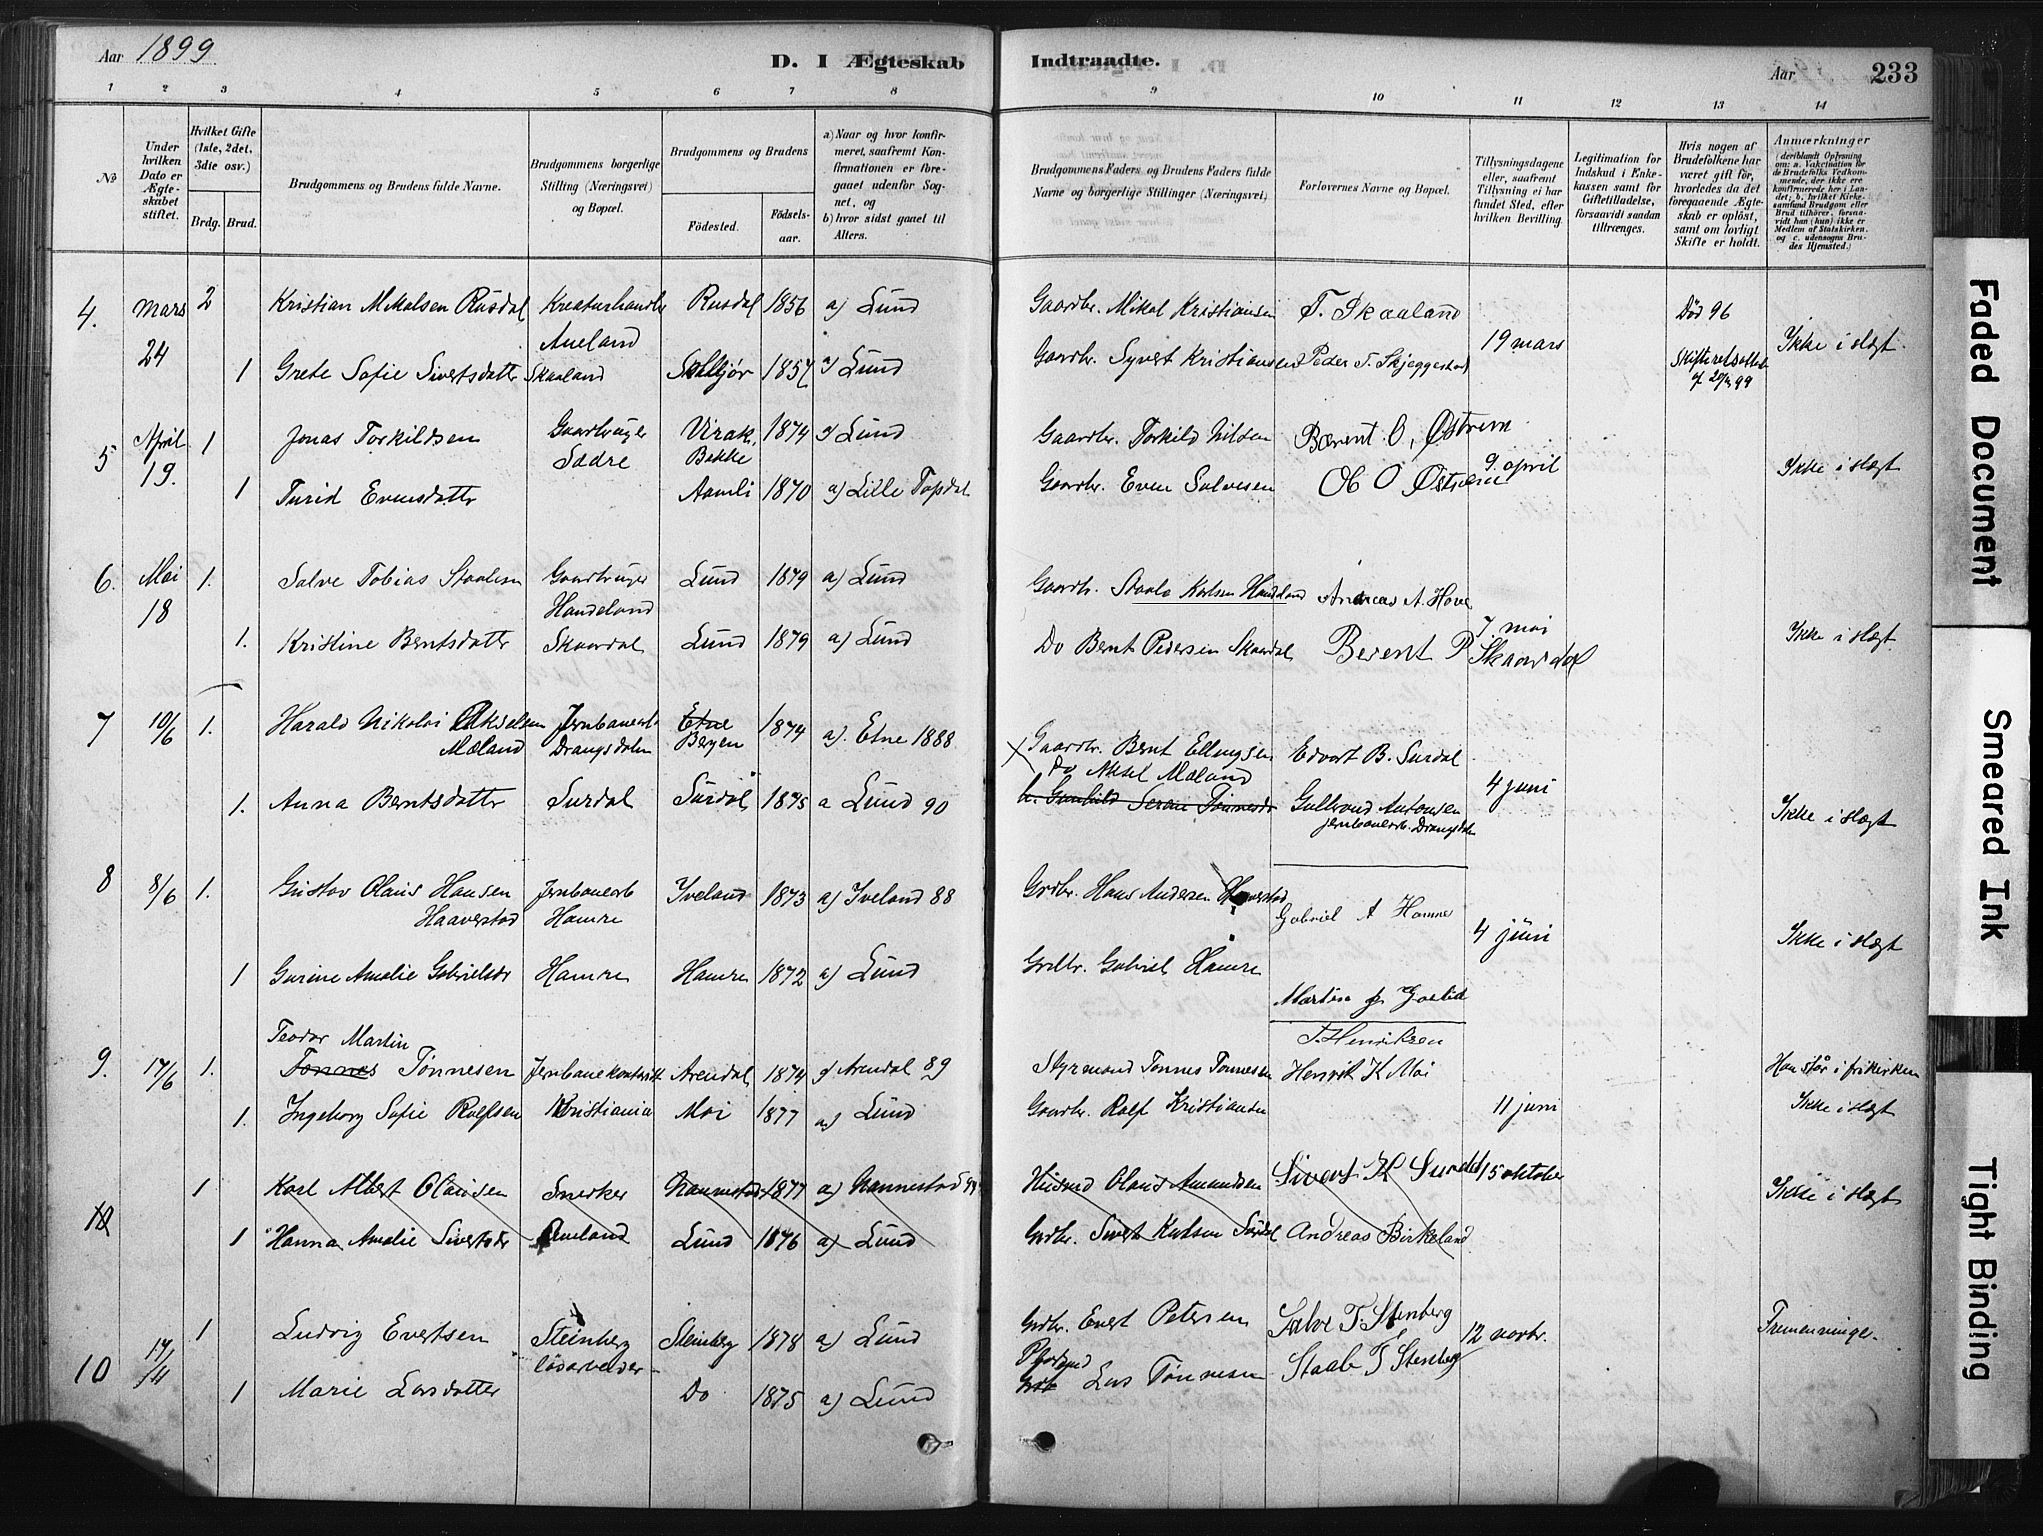 Aar 1899
D. I Ægteskab
Indtraadte.
Aar
233
1 2 3 4 5 6 7 8 9 10 11 12 13 14
No
Under hvilken Dato er Ægteskabet stiftet.
Hvilket Gifte (1ste, 2det, 3die osv.)
Brdg. Brud.
Brudgommens og Brudens fulde Navne.
Brudgommens borgerlige Stilling (Næringsvei) og Bopæl.
Brudgommens og Brudens
Fødested. Fødselsaar.
a) Naar og hvor konfirmeret, saafremt Konfirmationen er foregaaet udenfor Sognet, og
b) hvor sidst gaaet til Alters.
Brudgommens Faders og Brudens Faders fulde Navne og borgerlige Stillinger (Næringsvei)
Forlovernes Navne og Bopæl.
Tillysningsdagene eller, saafremt Tillysning ei har fundet Sted, efter hvilken Bevilling.
Legitimation for Indskud i Enkekassen samt for Giftetilladelse, forsaavidt saadan tiltrænges.
Hvis nogen af Brudefolkene har været gift før, hvorledes da det foregaaende Ægteskab er opløst, samt om lovligt Skifte er holdt.
Anmærkninger
(deriblandt Oplysning om: a. Vakcination for de Brudefolks Vedkommende, der ikke ere konfirmerede her i Landet; b. hvilket Kirkesamfund Brudgom eller Brud tilhører, forsaavidt han (hun) ikke er Medlem af Statskirken, og c. udensogns Brudes Hjemsted.)
4. Mars 2 Kristian Mikalsen Rusdal Kreaturhandler Rusdal 1856 a) Lund Gaardbr. Mikal Kristiansen T. Skaaland Død 96
Aueland
24 19 mars Ikke i slægt
1 Grete Sofie Sivertsdatter Skaaland 1857 a) Lund Gaardbr. Syvert Kristiansen Peder T. Skjeggestad
5 April 1 Jonas Torkildsen Gaardbruger Virak 1874 a) Lund Gaardbr. Torkild Nilsen Berent O. Østrem
Sædre Bakke
19. 9. april Ikke i slægt
1 Turid Evensdatter Aamli 1870 a) Lille Topdal Gaardbr. Even Salvesen Ob O Østrem
6. Mai 1. Salve Tobias Staalesen Gaardbruger Lund 1879 a) Lund Gaardbr. Staale Karlsen Haudeland Andreas A. Hove
18 Haudeland
7. mai Ikke i slægt
1. Kristine Berntsdatter Skaardal Lund 1879 a) Lund Do Bernt Pedersen Skaardal Berent P Skaardal
7 10/6 1. Harald Nikolai Akselsen Jernbanearb Etne 1874 a). Etne 1888 Gaardbr. Bernt Ellingsen Edvart B. Surdal
Mæland Drangsdalen Bergen
Do Aksel Mæland
4 juni
1. Anna Berntsdatter Surdal Surdal 1875 a Lund 90 Gunhild Serine Tønnesdr Gulbrand Antonsen
jernbanearb. Drangsdalen
Ikke i slægt
8 8/6 1. Gustav Olaus Hansen Jernbanearb Iveland 1873 a) Iveland 88 Grdbr. Hans Andersen Haaverstad Gabriel A Hamre
Haaverstad Hamre
4 juni Ikke i slægt
1 Gurine Amalie Gabrielsdr Hamre Hamre 1872 a) Lund Grdbr. Gabriel Hamre
Martin
Teodor Martin T. Henriksen
9. 17/6 1. Tønnes Tønnesen Jernbanekontorist Arendal 1874 a) Arendal 89 Styrmand Tønnes Tønnesen Henrik K Moi Han står i frikirken
1. Ingeborg Sofie Rolfsen Kristiania Moi 1877 a) Lund Gaardbr. Rolf Kristiansen 11 juni Ikke i slægt
10 1 Karl Albert Olausen Snerker Nannestad 1877 a) Nannestad Husmd Olaus Amundsen Sivert K Surdal 15 oktober Ikke i slægt
1 Hanna Amalie Sivertsdr Aueland Lund 1876 a) Lund Grdbr. Sivert Knutsen Surdal Andreas Birkeland
1 Ludvig Evertsen Steinberg Steinberg 1878 a) Lund Grdbr. Evert Petersen Salve T. Stenberg 12 novbr. Fremenninge.
10 løsarbeider Staale T Stenberg
1 Marie Larsdatter Do 1875 a) Lund Lars Tønnesen
Faded Document
Smeared Ink
Tight Binding